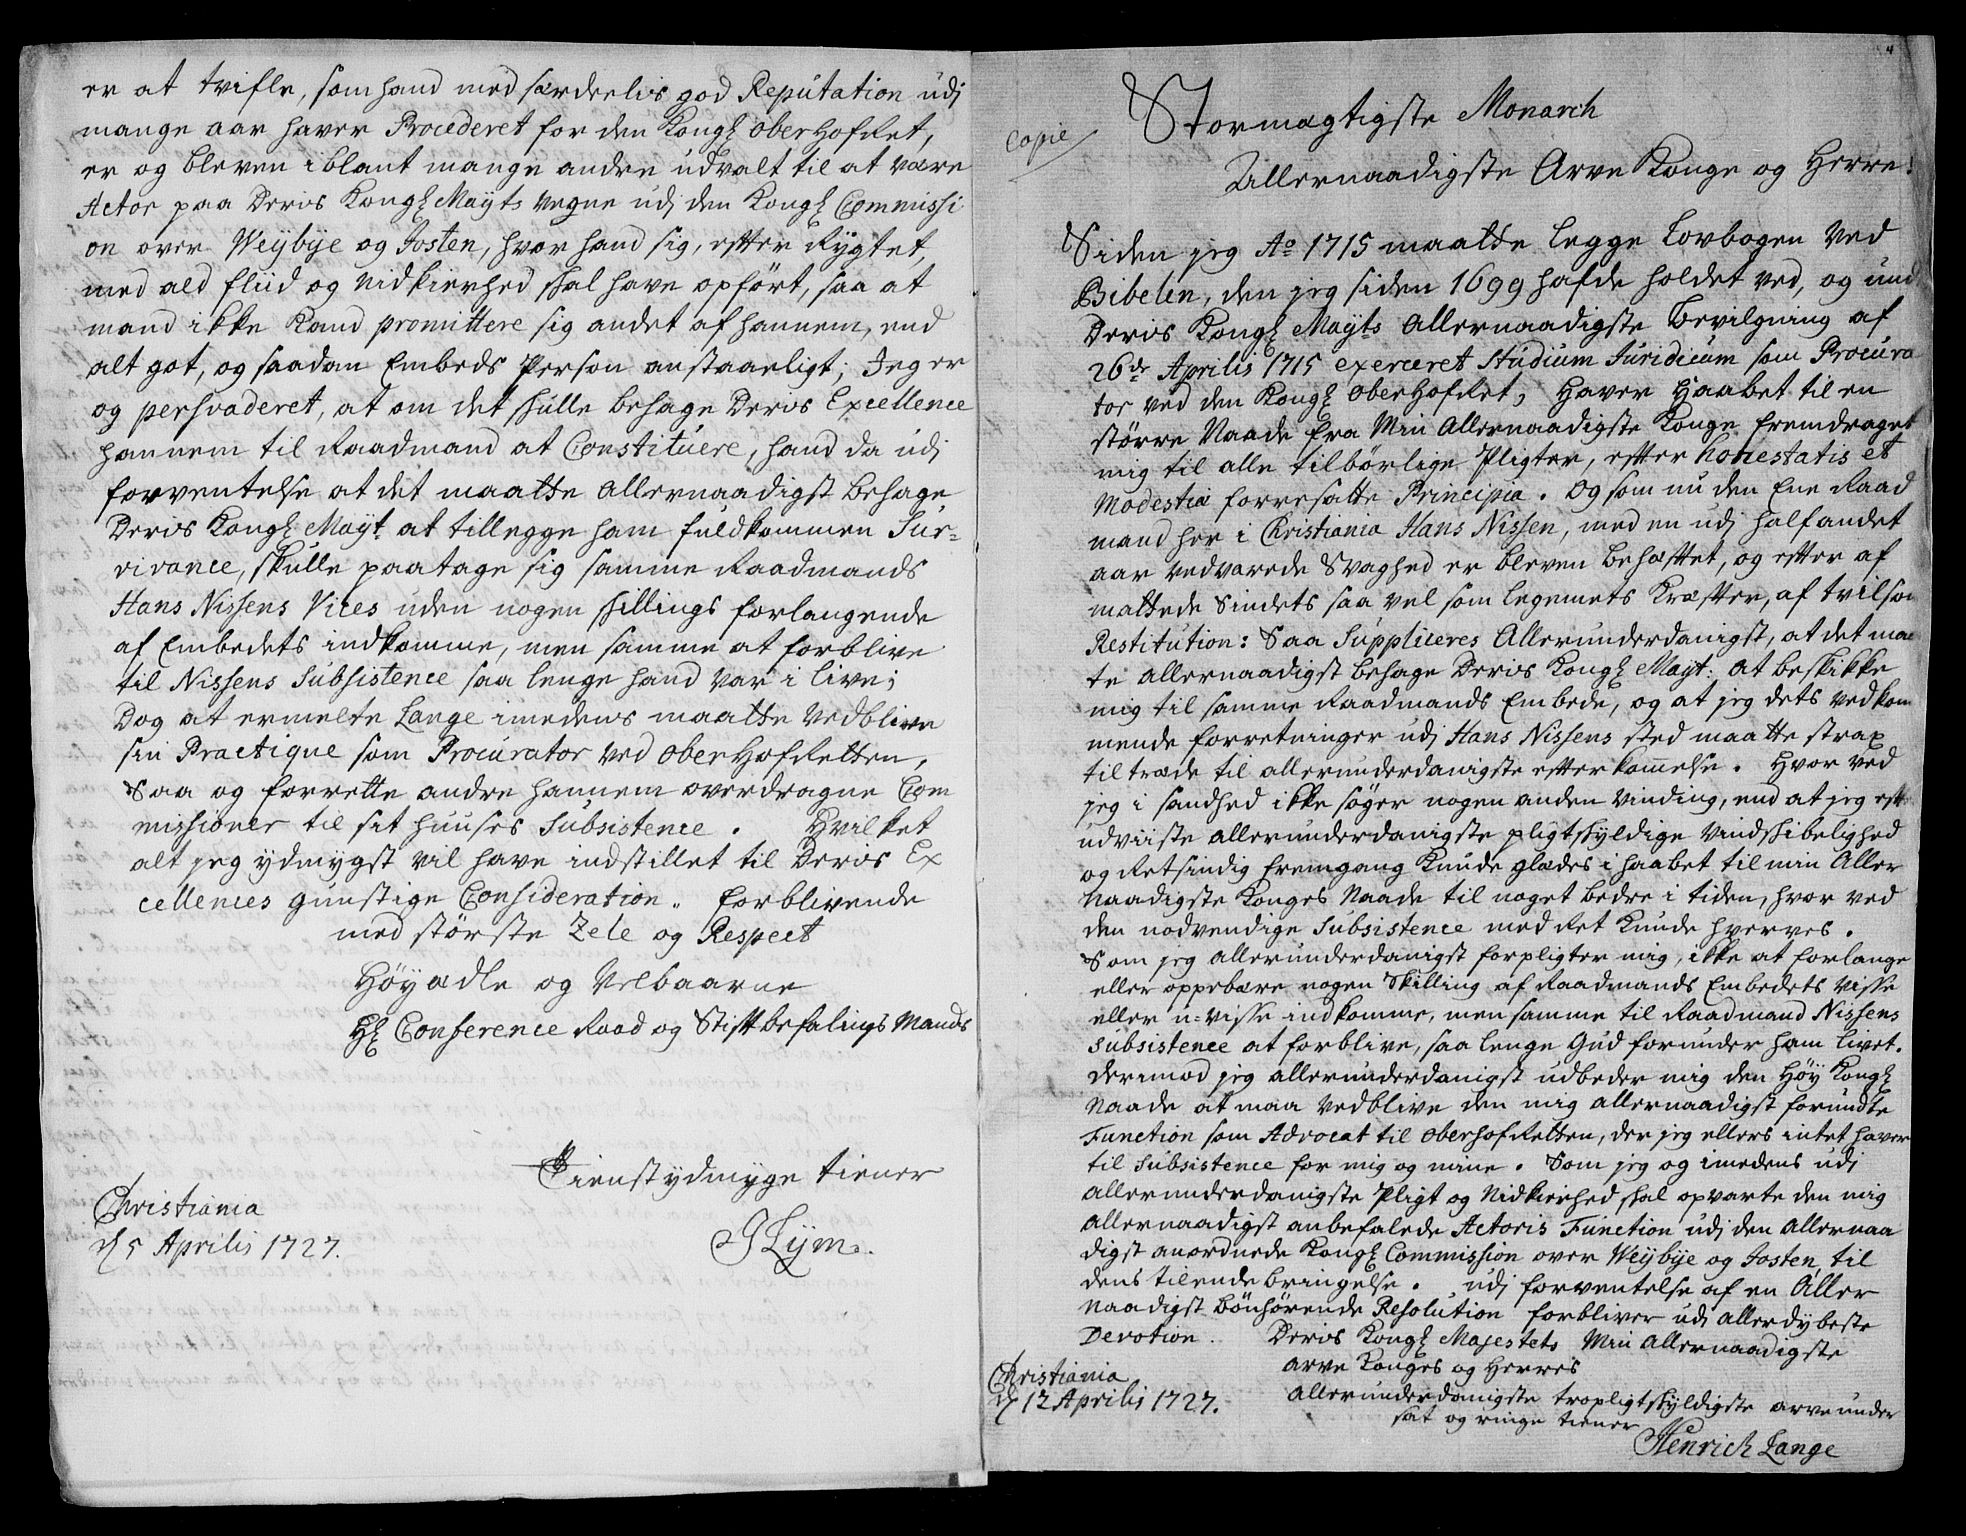 er at tvifle, som hand med særdeelis god Reputation udj
mange aar haver Procederet for den Kongl Oberhofret,
er og bleven iblant mange andre udvalt til at være
Actor paa Deris Kongl Mayts vegne udj den Kongl Commissi
on over Weybye og Josten, hvor hand sig, efter Rygtet,
med ald fliid og nidkierhed skal have opført, saa at
mand ikke kand promittere sig andet af hannem, end
alt got, og saadan Embeds Person anstaaeligt; Jeg er
og persvaderet, at om det skulle behage Deris Excellence
hannem til Raadmand at Constituere, hand da udj
forventelse at det maatte allernaadigst behage
Deris Kongl Mayt at tillegge ham fuldkommen Sur-
vivance, skulle paatage sig samme Raadmands
Hans Nissens Vices uden nogen skillings forlangende
af Embedets indkomme, men samme at forblive
til Nissens Subsistence saa lenge hand var i live;
Dog at ermelte Lange imedens maatte vedblive
sin Practique som Procurator ved Oberhofretten,
saa og forrette andre hannem overdragne Com
missioner til sit huuses Subsistence. Hvilket
alt jeg ydmygst vil have indstillet til Deris Ex
cellences gunstige Consideration. forblivende
med største Zele og Respect
Høyædle og Velbaarne
Hl Conference Raad og Stiftbefalings Mands
Tienstydmyge tiener
Christiania
d 5 Aprilis 1727.
4
Copie
Stormægtigste Monarch
Allernaadigste Arve Konge og Herre!
Siden jeg Ao 1715 maatte legge Lovbogen ved
Bibelen, den jeg siden 1699 hafde holdet ved, og und
Deris Kongl Mayts Allernaadigste bevilgning af
26de Aprilis 1715 exerceret Studium Juridicum som Procura
tor ved den Kongl Oberhofret, haver haabet til en
større Naade fra Min Allernaadigste Konge fremdraget
mig til alle tilbørlige Pligter, efter honestatis et
Modestiæ forresatte Principia. Og som nu den Ene Raad
mand her i Christiania Hans Nissen, med en udj half andet
aar vedvarede Svaghed er bleven behæftet, og efter af
mattede Sindets saa vel som legemets Kræfter, af tvilsom
Restitution: Saa Suppliceres Allerunderdanigst, at det maa
te allernaadigst behage Deris Kongl Mayt: at beskikke
mig til samme Raadmands Embede, og at jeg dets vedkom
mende forretninger udj Hans Nissens sted maatte strax
tiltræde til allerunderdanigste efterkommelse. Hvor ved
jeg i sandhed ikke søger nogen anden vinding, end at jeg efter
udviiste allerunderdanigste pligtskyldige vindskibelighed
og Retsindig fremgang kunde glædes i haabet til min Aller
naadigste Konges Naade til noget bedre i tiden, hvor ved
den nødvendige Subsistence med Ret kunde hverves.
Som jeg allerunderdanigst forpligter mig, ikke at forlange
eller oppebære nogen Skilling af Raadmands Embedets visse
eller u=visse indkomme, men samme til Raadmand Nissens
Subsistence at forblive, saa lenge Gud forunder ham livet.
derimod jeg allerunderdanigst udbeder mig den Høy Kongl
Naade at maa vedblive den mig allernaadigst forundte
Function som Advocat til Oberhofretten, der jeg ellers intet haver
til Subsistence for mig og mine. Som jeg og imedens udj
allerunderdanigste Pligt og Nidkierhed skal opvarte den mig
allernaadigst anbefalede Actoris Function udj den allernaa
digst anordnede Kongl Commission over Weybye og Josten til
dens tilendebringelse. udj forventelse af en Aller
naadigst bønhørende Resolution forbliver udj allerdybeste
Devotion. Deris Kongl Majestets Min Allernaadigste
Arve Konges og Herres
Christiania
d 12 Aprilis 1727.
allerunderdanigste tropligtskyldigste arveunder
sat og ringe tiener
Henrich Lange